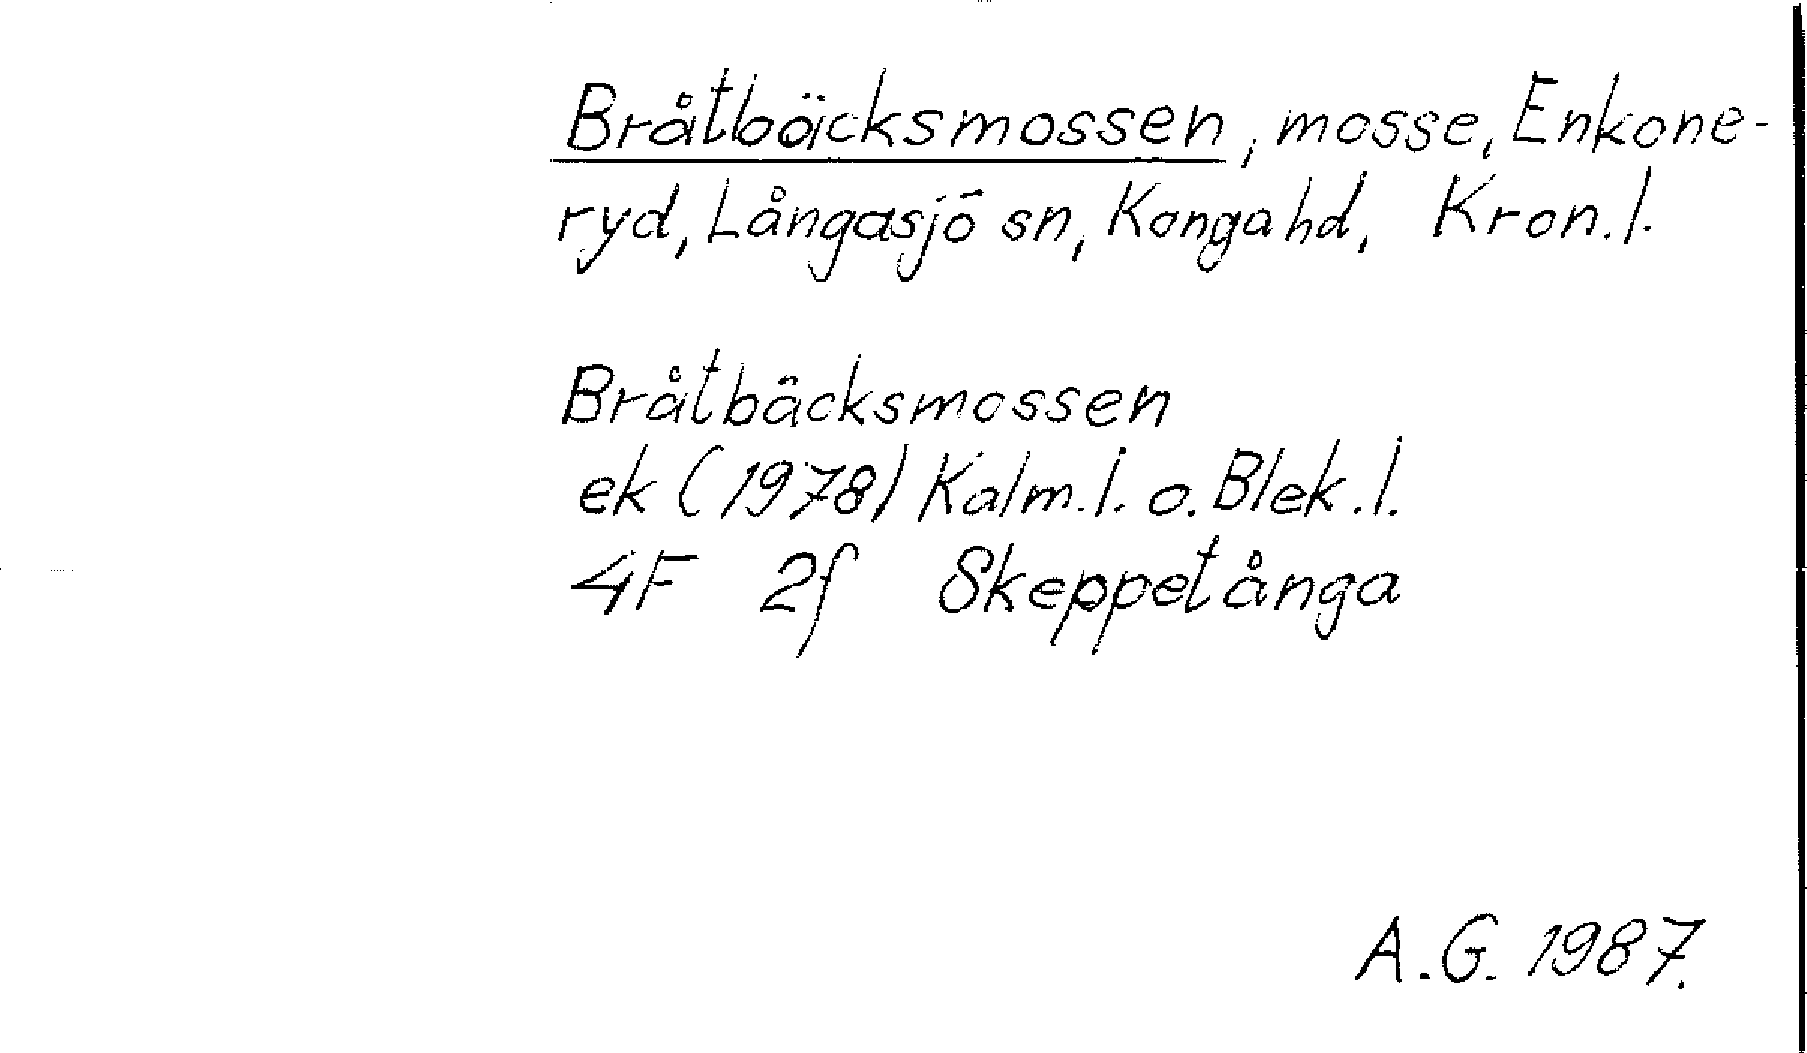 Bråtbäcksmossen, mosse, Enkone-
ryd, Långasjö sn, Konga hd, Kron.l.
Bråtbäcksmossen
ek (1978) Kalm.l. o. Blek.l.
4F 2f Skeppetånga
A.G. 1987.